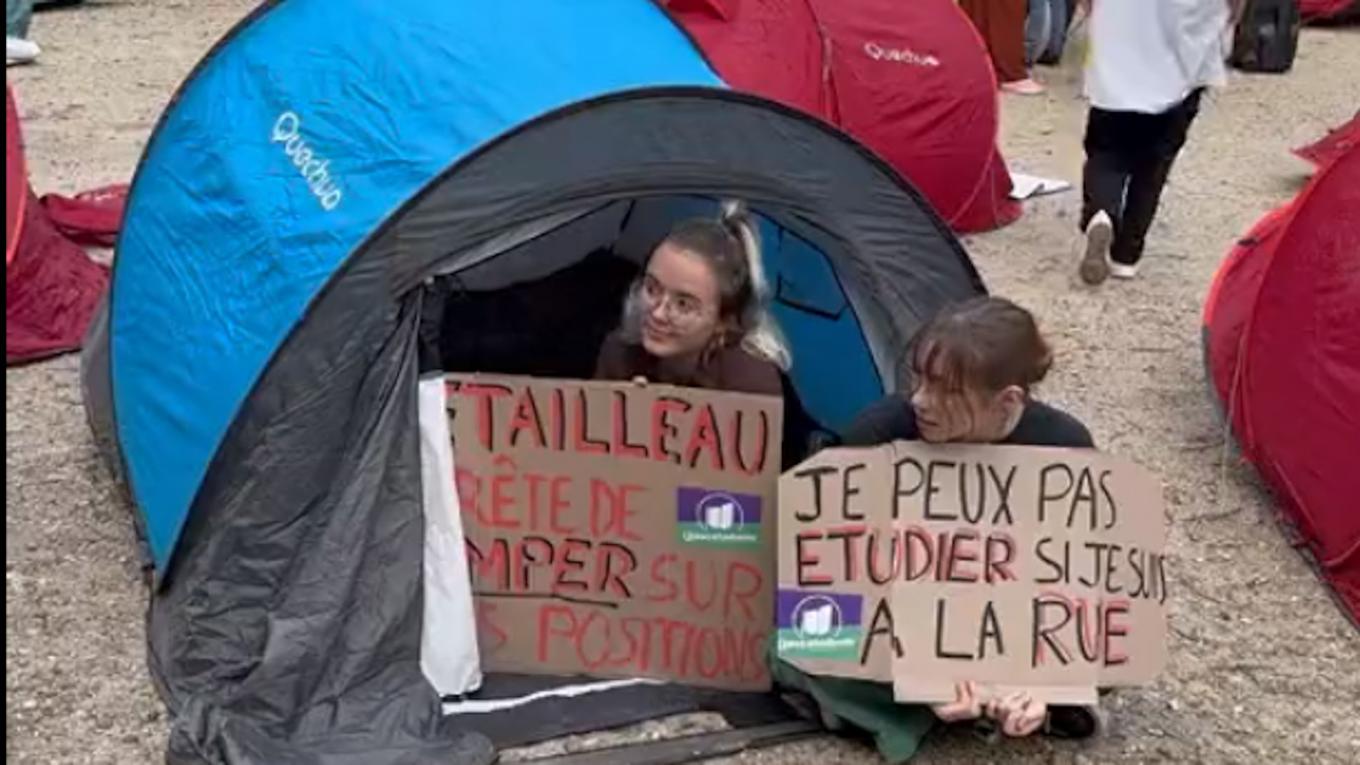 Quechua
Quechua
ETAILLEAU
RÊTE DE
MPER SUR
S POSITIONS
JE PEUX PAS
ETUDIER SI JE SUIS
A LA RUE